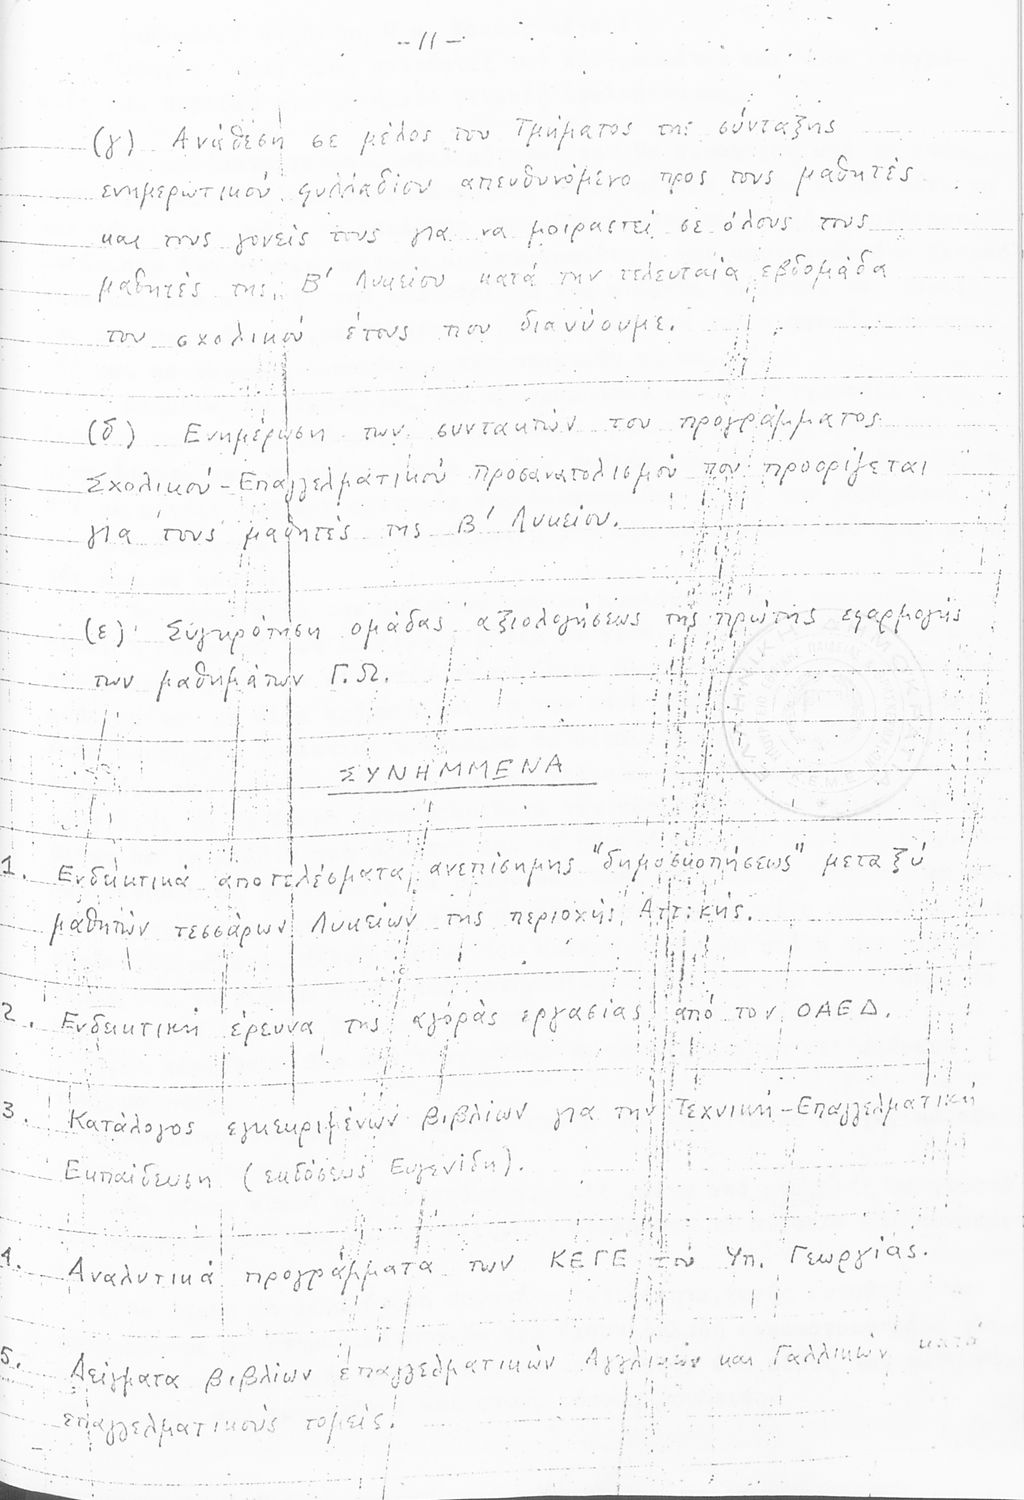 -11-
(γ) Ανάθεση σε μέλος του Τμήματος της σύνταξης
ενημερωτικού φυλλαδίου απευθυνόμενο προς τους μαθητές
και τους γονείς τους για να μοιραστεί σε όλους τους
μαθητές της Β' Λυκείου κατά την τελευταία εβδομάδα
του σχολικού έτους που διανύουμε.
(δ) Ενημέρωση των συντακτών του προγράμματος
Σχολικού-Επαγγελματικού Προσανατολισμού που προορίζεται
για τους μαθητές της Β' Λυκείου.
(ε) Συγκρότηση ομάδας αξιολογήσεως της πρώτης εφαρμογής
των μαθημάτων Γ.Ω.
ΣΥΝΗΜΜΕΝΑ
1. Ενδεικτικά αποτελέσματα ανεπίσημης "δημοσκοπήσεως" μεταξύ
μαθητών τεσσάρων Λυκείων της περιοχής Αττικής.
2. Ενδεικτική έρευνα της αγοράς εργασίας από τον ΟΑΕΔ.
3. Κατάλογος εγκεκριμένων βιβλίων για την Τεχνική-Επαγγελματική
Εκπαίδευση (εκδόσεως Ευγενίδη).
4. Αναλυτικά προγράμματα των ΚΕΓΕ του Υπ. Γεωργίας.
5. Δείγματα βιβλίων επαγγελματικών Αγγλικών και Γαλλικών κατά
επαγγελματικούς τομείς.